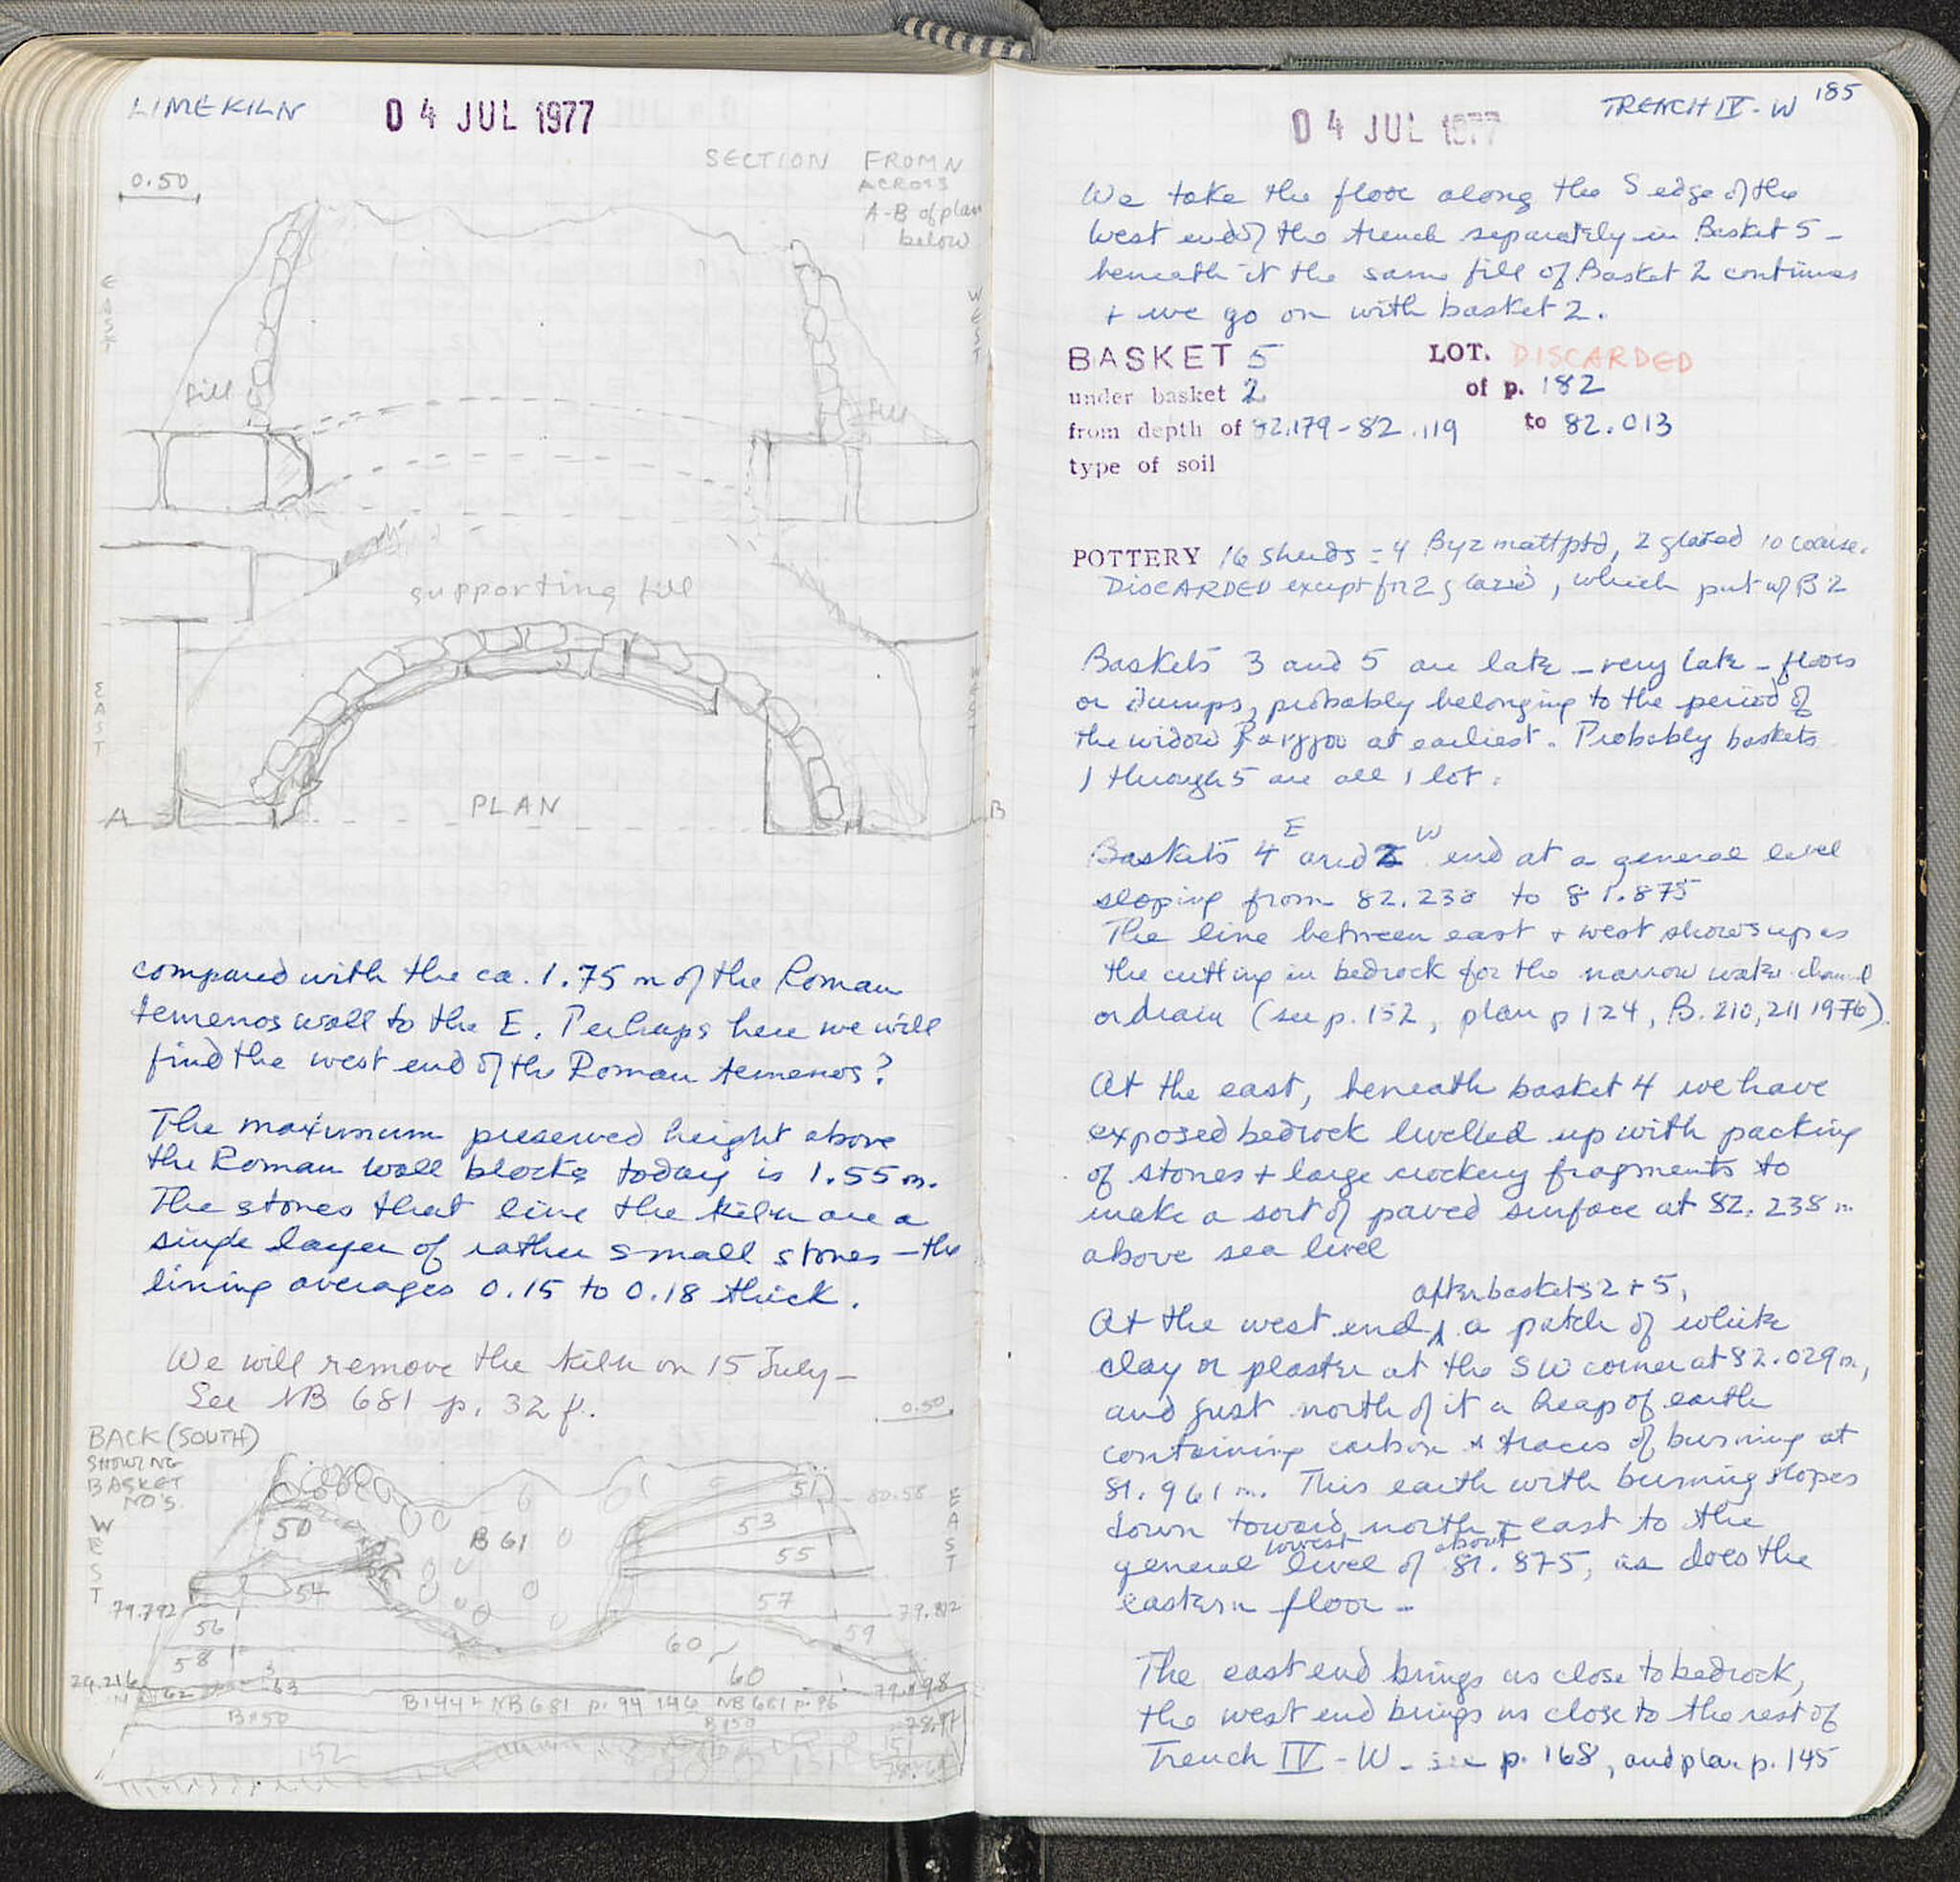 LIME KILN
04 JUL 1977
SECTION FROM N
ACROSS
A-B of plan
below
0.50
EAST
WEST
fill
fill
supporting fill
EAST
WEST
A
PLAN
B
compared with the ca. 1.75 m of the Roman
temenos wall to the E. Perhaps here we will
find the west end of the Roman temenos?
The maximum preserved height above
the Roman wall blocks today is 1.55 m.
The stones that line the kiln are a
single layer of rather small stones - the
lining averages 0.15 to 0.18 thick.
We will remove the kiln on 15 July -
See NB 681 p. 32 f.
0.50
BACK (SOUTH)
SHOWING
BASKET
NO'S.
WEST
EAST
50
B 61
51
80.58
53
55
54
57
79.792
56
59
60
58
60
62
63
B 144 NB 681 p. 94 146 NB 681 p. 96
B 150
B 150
152
151
TRENCH IV - W 185
04 JUL 1977
We take the floor along the S edge of the
west end of the trench separately in Basket 5 -
beneath it the same fill of Basket 2 continues
+ we go on with basket 2.
BASKET 5 LOT. DISCARDED
under basket 2 of p. 182
from depth of 82.179 - 82.119 to 82.013
type of soil
POTTERY 16 sherds = 4 Byz matt ptd, 2 glazed 10 coarse.
DISCARDED except for 2 glazed, which put w/ B 2
Baskets 3 and 5 are late - very late - floors
or dumps, probably belonging to the period of
the widow at earliest. Probably baskets
1 through 5 are all 1 lot.
Baskets 4 E and 2 W end at a general level
sloping from 82.238 to 81.875
The line between east + west shows up as
the cutting in bedrock for the narrow water channel
or drain (see p. 152, plan p 124, B. 210, 211 1976).
At the east, beneath basket 4 we have
exposed bedrock levelled up with packing
of stones + large crockery fragments to
make a sort of paved surface at 82.238 m
above sea level
after baskets 2 + 5,
At the west end a patch of white
clay or plaster at the SW corner at 82.029 m,
and just north of it a heap of earth
containing carbon + traces of burning at
81.961 m. This earth with burning slopes
down toward north + east to the
general lowest level of about 81.875, as does the
eastern floor -
The east end brings us close to bedrock,
the west end brings us close to the rest of
Trench IV - W - see p. 168, and plan p. 145